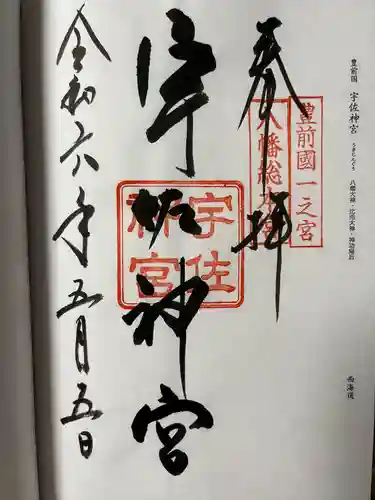 豊前国 宇佐神宮 うさじんぐう 八幡大神・比売大神・神功皇后
西海道
奉拝
豊前國一之宮
八幡総本宮
宇佐神宮
宇佐
神宮
令和六年五月五日